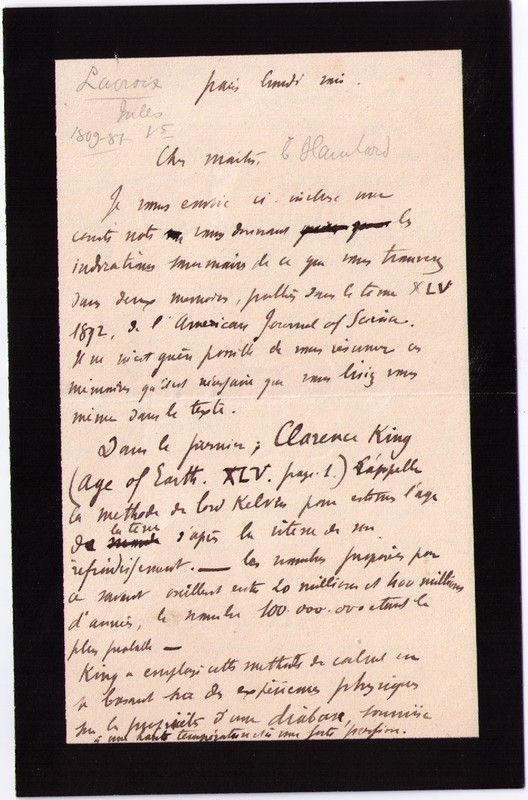 Lacroix
Jules
1809-87
paris lundi
Cher maitre,
Je vous envoie ci-incluse une
courte note vous donnant les
indications sommaires de ce que vous trouverez
dans deux memoires, publiés dans le tome XLV
1892, de l'American Journal of Science.
Il ne m'est guère possible de vous résumer ces
mémoires qu'il est nécessaire que vous lisiez vous
même dans le texte.
Dans le premier; Clarence King
(Age of Earth. XLV. page. 1.) rappelle
la méthode de lord Kelvin pour estimer l'age
de la terre d'après la vitesse de son
refroidissement. — les nombres proposés par
ce savant oscillent entre 20 millions et 400 millions
d'années, le nombre 100.000.000 étant le
plus probable —
King a employé cette methode de calcul en
se basant sur des expériences physiques
sur la propriétés d'une diabase, soumise
à une haute température et à une forte pression.